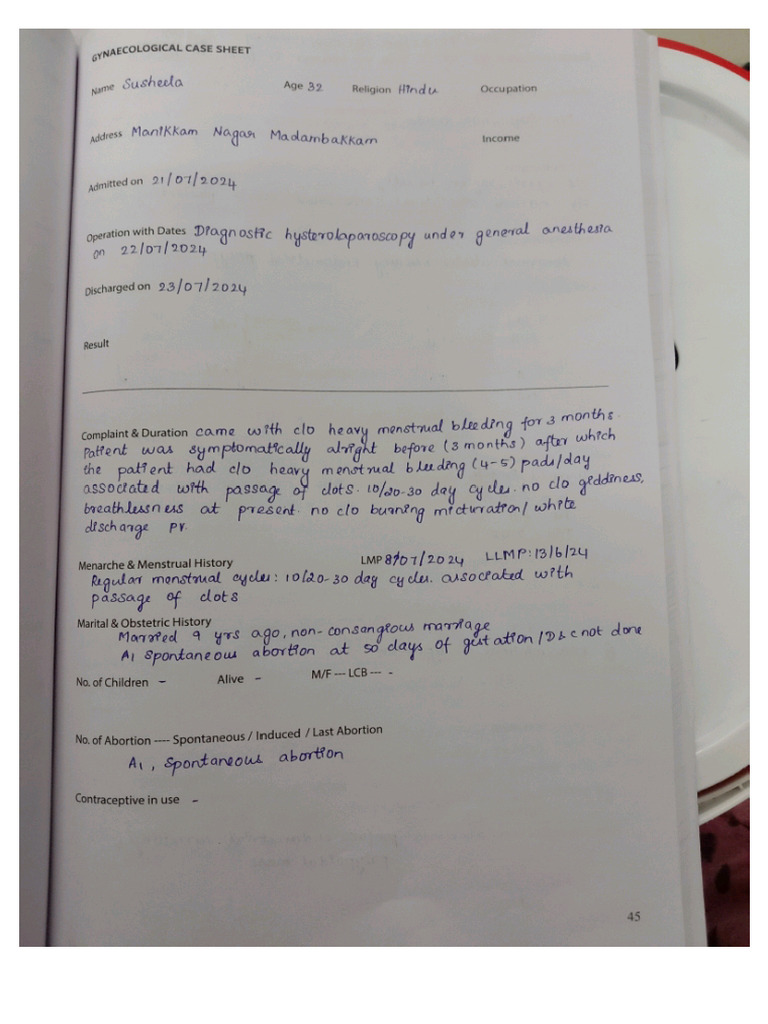 GYNAECOLOGICAL CASE SHEET
Name Susheela Age 32 Religion Hindu Occupation
Address Manikkam Nagar Madambakkam Income
Admitted on 21/07/2024
Operation with Dates Diagnostic hysterolaparoscopy under general anesthesia
on 22/07/2024
Discharged on 23/07/2024
Result
Complaint & Duration came with c/o heavy menstrual bleeding for 3 months.
Patient was symptomatically alright before (3 months) after which
the patient had c/o heavy menstrual bleeding (4-5) pads/day
associated with passage of clots. 10/20-30 day cycles. no c/o giddiness,
breathlessness at present. no c/o burning micturration/ white
discharge PV.
Menarche & Menstrual History LMP 8/07/2024 LLMP: 13/6/24
Regular menstrual cycles: 10/20-30 day cycles. associated with
passage of clots
Marital & Obstetric History
Married 9 yrs ago, non-consangious marriage
A1 spontaneous abortion at 50 days of gestation / D&C not done
No. of Children - Alive - M/F --- LCB --- -
No. of Abortion ---- Spontaneous / Induced / Last Abortion
A1, spontaneous abortion
Contraceptive in use -
45